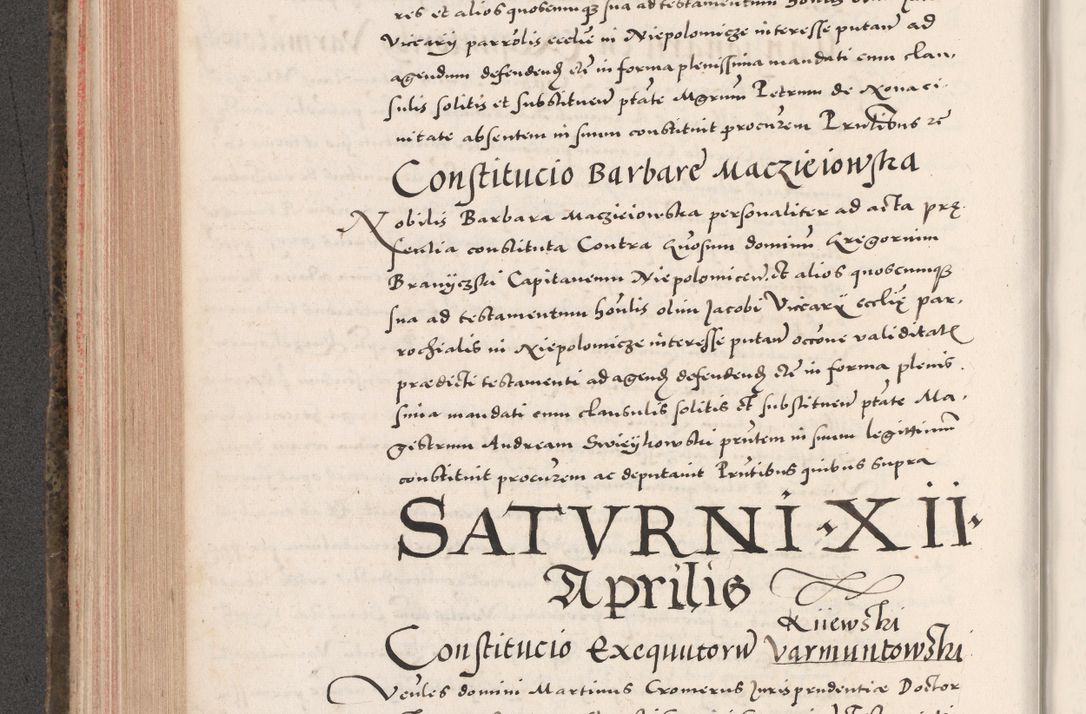 res et alios quoscunqȝ sua ad testamentum
Vicary parrolis ecclie in Niepolomicze interesse putan̄ ad
agendum defendendȝ etc̄ in forma plenissima mandati cum clau-
sulis solitis et substituen̄ ptāte Mgrum Petrum de
uitate absentem in suum constituit procurem Prntibus
Constitucio Barbare Maczieiowska
Nobilis Barbara Macziejowska personaliter ad acta prę-
sentia constituta Contra Gnosum dominum Gregorium
Branyczski Capitaneum Niepolomicen̄. et alios quoscumqȝ
sua ad testamentum honlis olim Jacobi Vicary ecclię par-
rochialis in Niepolomicze interesse putan̄ occone validitatis
prædicti testamenti ad agendȝ defendendȝ etc̄ in forma plenis-
sima mandati cum clausulis solitis et substituen̄ ptāte Ma-
gistrum Andream prntem in suum legittimum
constituit procurem ac deputauit Prntibus quibus supra
SATVRNI · XII ·
Aprilis
Kiiewski
Constitucio Exequutorum Varmuntowski
Venles domini Martinus Cromerus Jurisprudentiæ Doctor